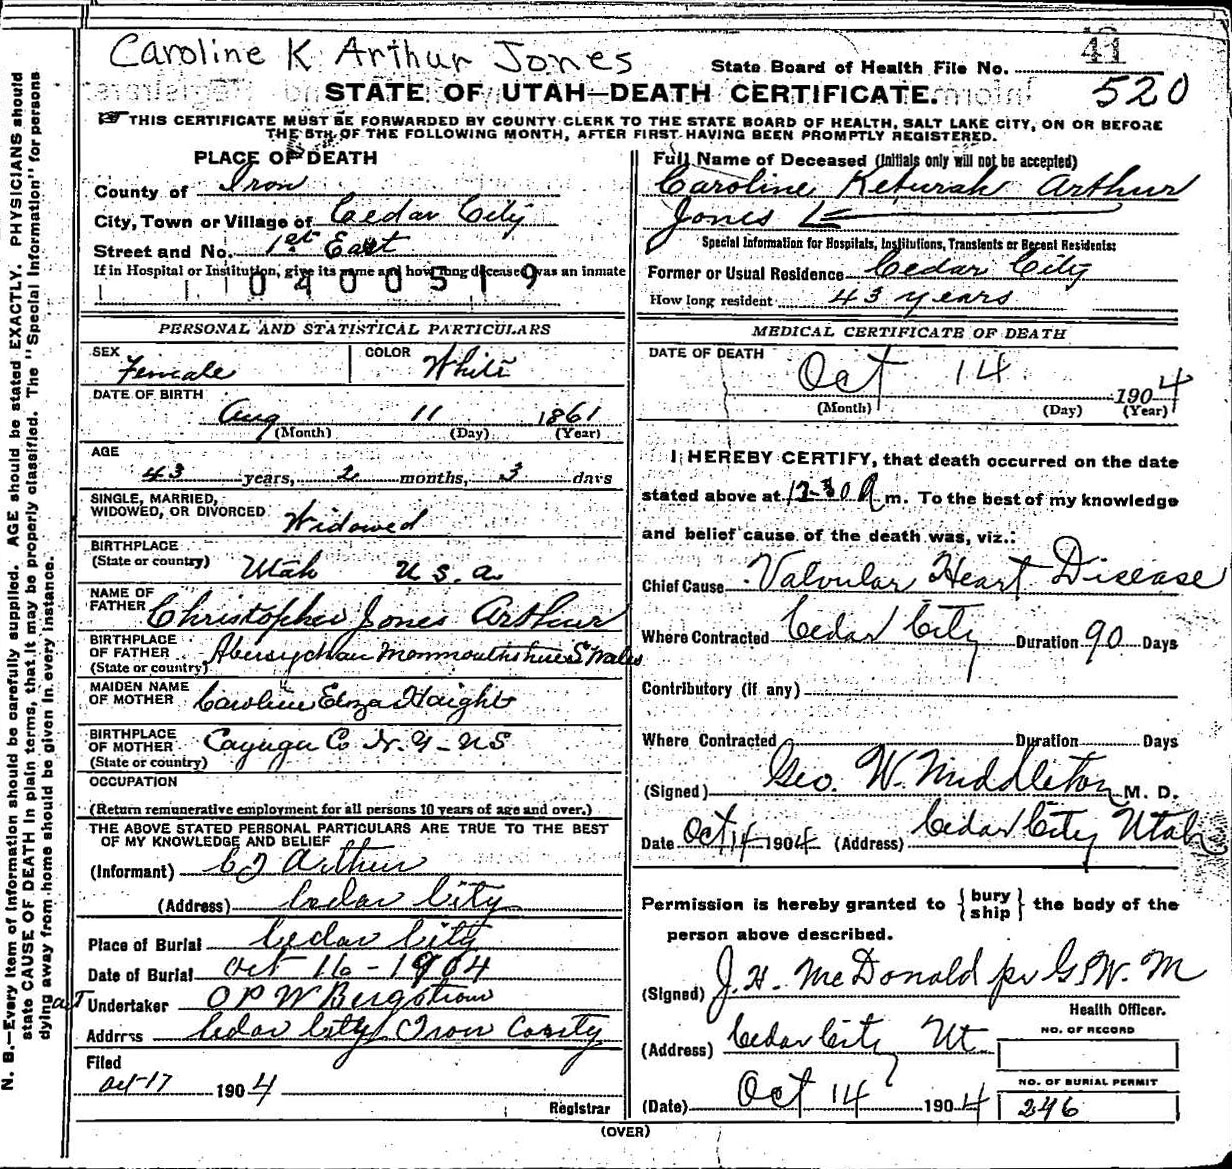 Caroline K Arthur Jones
41
State Board of Health File No.
520
STATE OF UTAH—DEATH CERTIFICATE.
THIS CERTIFICATE MUST BE FORWARDED BY COUNTY CLERK TO THE STATE BOARD OF HEALTH, SALT LAKE CITY, ON OR BEFORE
THE 5TH OF THE FOLLOWING MONTH, AFTER FIRST HAVING BEEN PROMPTLY REGISTERED.
PLACE OF DEATH
County of Iron
City, Town or Village of Cedar City
Street and No. 1st East
If in Hospital or Institution, give its name and how long deceased was an inmate
0400519
PERSONAL AND STATISTICAL PARTICULARS
SEX Female
COLOR White
DATE OF BIRTH
Aug 11 1861
(Month) (Day) (Year)
AGE
43 years, 2 months, 3 days
SINGLE, MARRIED,
WIDOWED, OR DIVORCED Widowed
BIRTHPLACE
(State or country) Utah U.S.a.
NAME OF
FATHER Christopher Jones Arthur
BIRTHPLACE
OF FATHER Abersychan Monmouthshire S Wales
(State or country)
MAIDEN NAME
OF MOTHER Caroline Eliza Haight
BIRTHPLACE
OF MOTHER Cayuga Co N.Y-US
(State or country)
OCCUPATION
(Return remunerative employment for all persons 10 years of age and over.)
THE ABOVE STATED PERSONAL PARTICULARS ARE TRUE TO THE BEST
OF MY KNOWLEDGE AND BELIEF
(Informant) C J Arthur
(Address) Cedar City
Place of Burial Cedar City
Date of Burial Oct 16-1904
Undertaker O P W Bergstrom
Address Cedar City Iron County
Filed
Oct-17 1904
Registrar
Full Name of Deceased (Initials only will not be accepted)
Caroline Keturah Arthur
Jones
Special Information for Hospitals, Institutions, Transients or Recent Residents:
Former or Usual Residence Cedar City
How long resident 43 years
MEDICAL CERTIFICATE OF DEATH
DATE OF DEATH
Oct 14 1904
(Month) (Day) (Year)
I HEREBY CERTIFY, that death occurred on the date
stated above at 12-30 A m. To the best of my knowledge
and belief cause of the death was, viz.:
Chief Cause Valvular Heart Disease
Where Contracted Cedar City Duration 90 Days
Contributory (if any)
Where Contracted Duration Days
(Signed) Geo. W. Middleton M. D.
Date Oct 14 1904 (Address) Cedar City Utah
Permission is hereby granted to { bury ship } the body of the
person above described.
(Signed) J. H. McDonald pr G.W. M
Health Officer.
(Address) Cedar City Ut
NO. OF RECORD
(Date) Oct 14 1904
NO. OF BURIAL PERMIT
246
(OVER)
N. B.—Every item of information should be carefully supplied. AGE should be stated EXACTLY. PHYSICIANS should
state CAUSE OF DEATH in plain terms, that it may be properly classified. The "Special Information" for persons
dying away from home should be given in every instance.